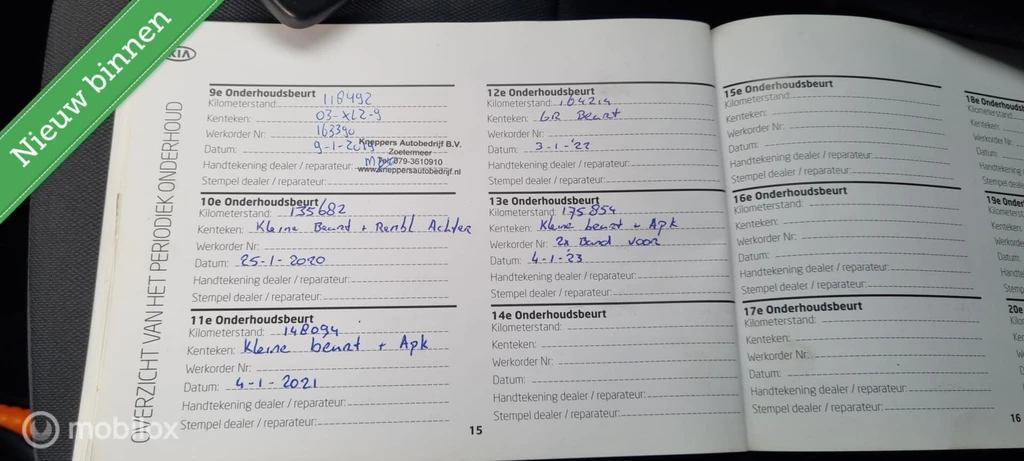 Nieuw binnen
KIA
OVERZICHT VAN HET PERIODIEK ONDERHOUD
9e Onderhoudsbeurt
Kilometerstand: 118492
Kenteken: 03-XLZ-9
Werkorder Nr: 163390
Datum: 9-1-2019
Handtekening dealer / reparateur:
Stempel dealer / reparateur:
Kneppers Autobedrijf B.V.
Zoetermeer
Tel. 079-3610910
www.kneppersautobedrijf.nl
10e Onderhoudsbeurt
Kilometerstand: 135682
Kenteken: Kleine Beurt + Rembl Achter
Werkorder Nr:
Datum: 25-1-2020
Handtekening dealer / reparateur:
Stempel dealer / reparateur:
11e Onderhoudsbeurt
Kilometerstand: 148094
Kenteken: Kleine beurt + Apk
Werkorder Nr:
Datum: 4-1-2021
Handtekening dealer / reparateur:
Stempel dealer / reparateur:
12e Onderhoudsbeurt
Kilometerstand: 164214
Kenteken: GR Beurt
Werkorder Nr:
Datum: 3-1-'22
Handtekening dealer / reparateur:
Stempel dealer / reparateur:
13e Onderhoudsbeurt
Kilometerstand: 175854
Kenteken: Kleine beurt + Apk
Werkorder Nr: 2x Band voor
Datum: 4-1-'23
Handtekening dealer / reparateur:
Stempel dealer / reparateur:
14e Onderhoudsbeurt
Kilometerstand:
Kenteken:
Werkorder Nr:
Datum:
Handtekening dealer / reparateur:
Stempel dealer / reparateur:
15
15e Onderhoudsbeurt
Kilometerstand:
Kenteken:
Werkorder Nr:
Datum:
Handtekening dealer / reparateur:
Stempel dealer / reparateur:
16e Onderhoudsbeurt
Kilometerstand:
Kenteken:
Werkorder Nr:
Datum:
Handtekening dealer / reparateur:
Stempel dealer / reparateur:
17e Onderhoudsbeurt
Kilometerstand:
Kenteken:
Werkorder Nr:
Datum:
Handtekening dealer / reparateur:
Stempel dealer / reparateur:
18e Onderhouds
Kilometerstand:
Kenteken:
Werkorder Nr:
Datum:
Handtekening
Stempel deale
19e Onder
Kilometers
Kenteken:
Werkorde
Datum:
Handte
Stemp
20e
Kil
Ke
16
mobilox